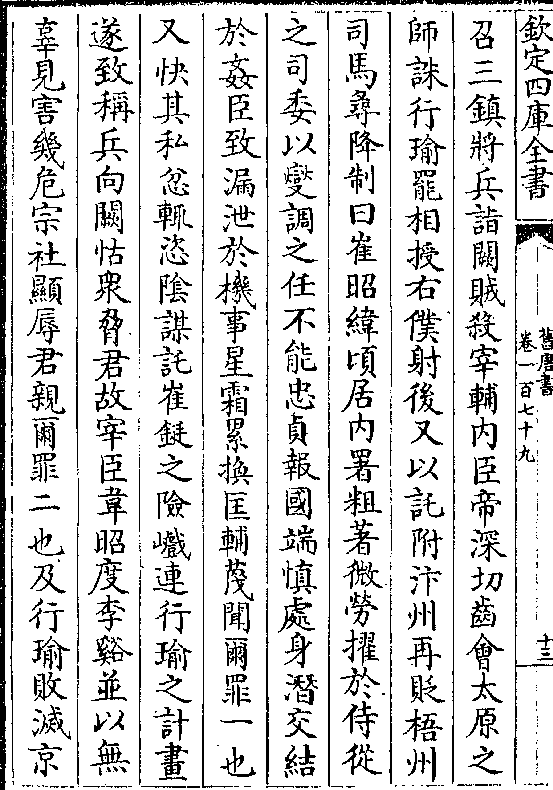 欽定四庫全書
舊唐書
卷一百七十九
十三
召三鎮將兵詣闕賊殺宰輔內臣帝深切齒會太原之
師誅行瑜罷相授右僕射後又以託附汴州再貶梧州
司馬尋降制曰崔昭緯頃居內署粗著微勞擢於侍從
之司委以燮調之任不能忠貞報國端慎處身潛交結
於姦臣致漏泄於機事星霜累換匡輔蔑聞爾罪一也
又快其私忿輒恣陰謀託崔鋋之險巇連行瑜之計畫
遂致稱兵向闕怙衆脅君故宰臣韋昭度李谿並以無
辜見害幾危宗社顯辱君親爾罪二也及行瑜敗滅京